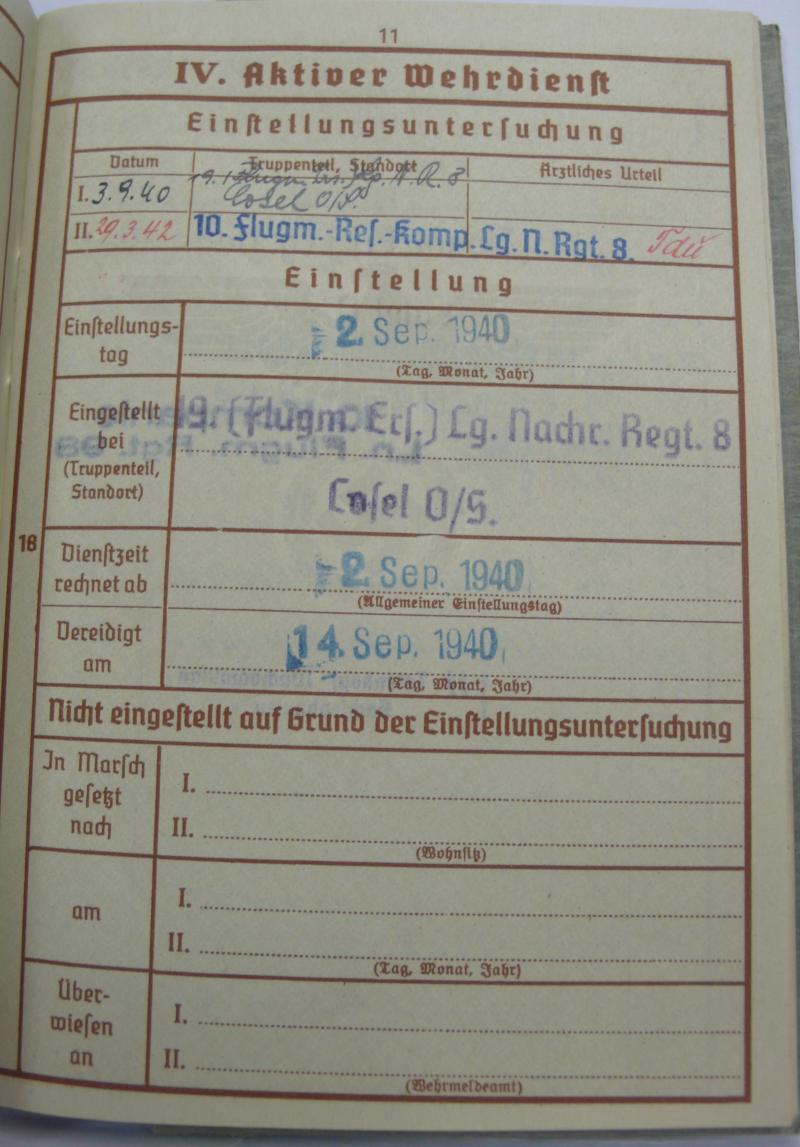 11
IV. Aktiver Wehrdienst
Einstellungsuntersuchung
Datum Truppenteil, Standort Ärztliches Urteil
I. 3.9.40 19. (Flugm. Ers.) N. R. 8
Cosel O/S.
II. 29.3.42 10. Flugm.-Res.-Komp. Lg. N. Rgt. 8.
Einstellung
Einstellungs-
tag
2. Sep. 1940
(Tag, Monat, Jahr)
Eingestellt
bei
(Truppenteil,
Standort)
19. (Flugm. Ers.) Lg. Nachr. Regt. 8
Cosel O/S.
18
Dienstzeit
rechnet ab
2. Sep. 1940
(Allgemeiner Einstellungstag)
Vereidigt
am
14. Sep. 1940
(Tag, Monat, Jahr)
Nicht eingestellt auf Grund der Einstellungsuntersuchung
In Marsch
gesetzt
nach
I.
II.
(Wohnsitz)
am
I.
II.
(Tag, Monat, Jahr)
Über-
wiesen
an
I.
II.
(Wehrmeldeamt)